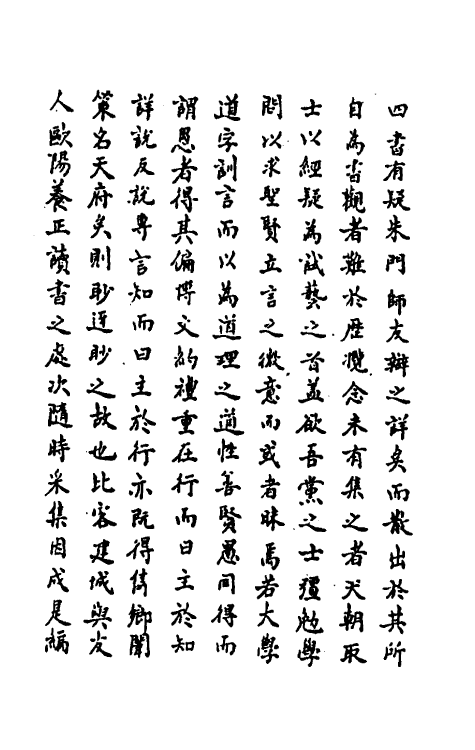 四書有疑朱門師友辯之詳矣而散出於其所
自為書觀者難於歷覽念未有集之者天朝取
士以經疑為試藝之首葢欲吾黨之士彊勉學
問以求聖賢立言之微意而或者昧焉若大學
道字訓言而以為道理之道性善賢愚同得而
謂愚者得其偏博文約禮重在行而曰主於知
詳說反說專言知而曰主於行亦旣得儁鄉闈
策名天府矣則眇迋眇之故也比客建城與友
人歐陽養正讀書之處次隨時采集因成是編